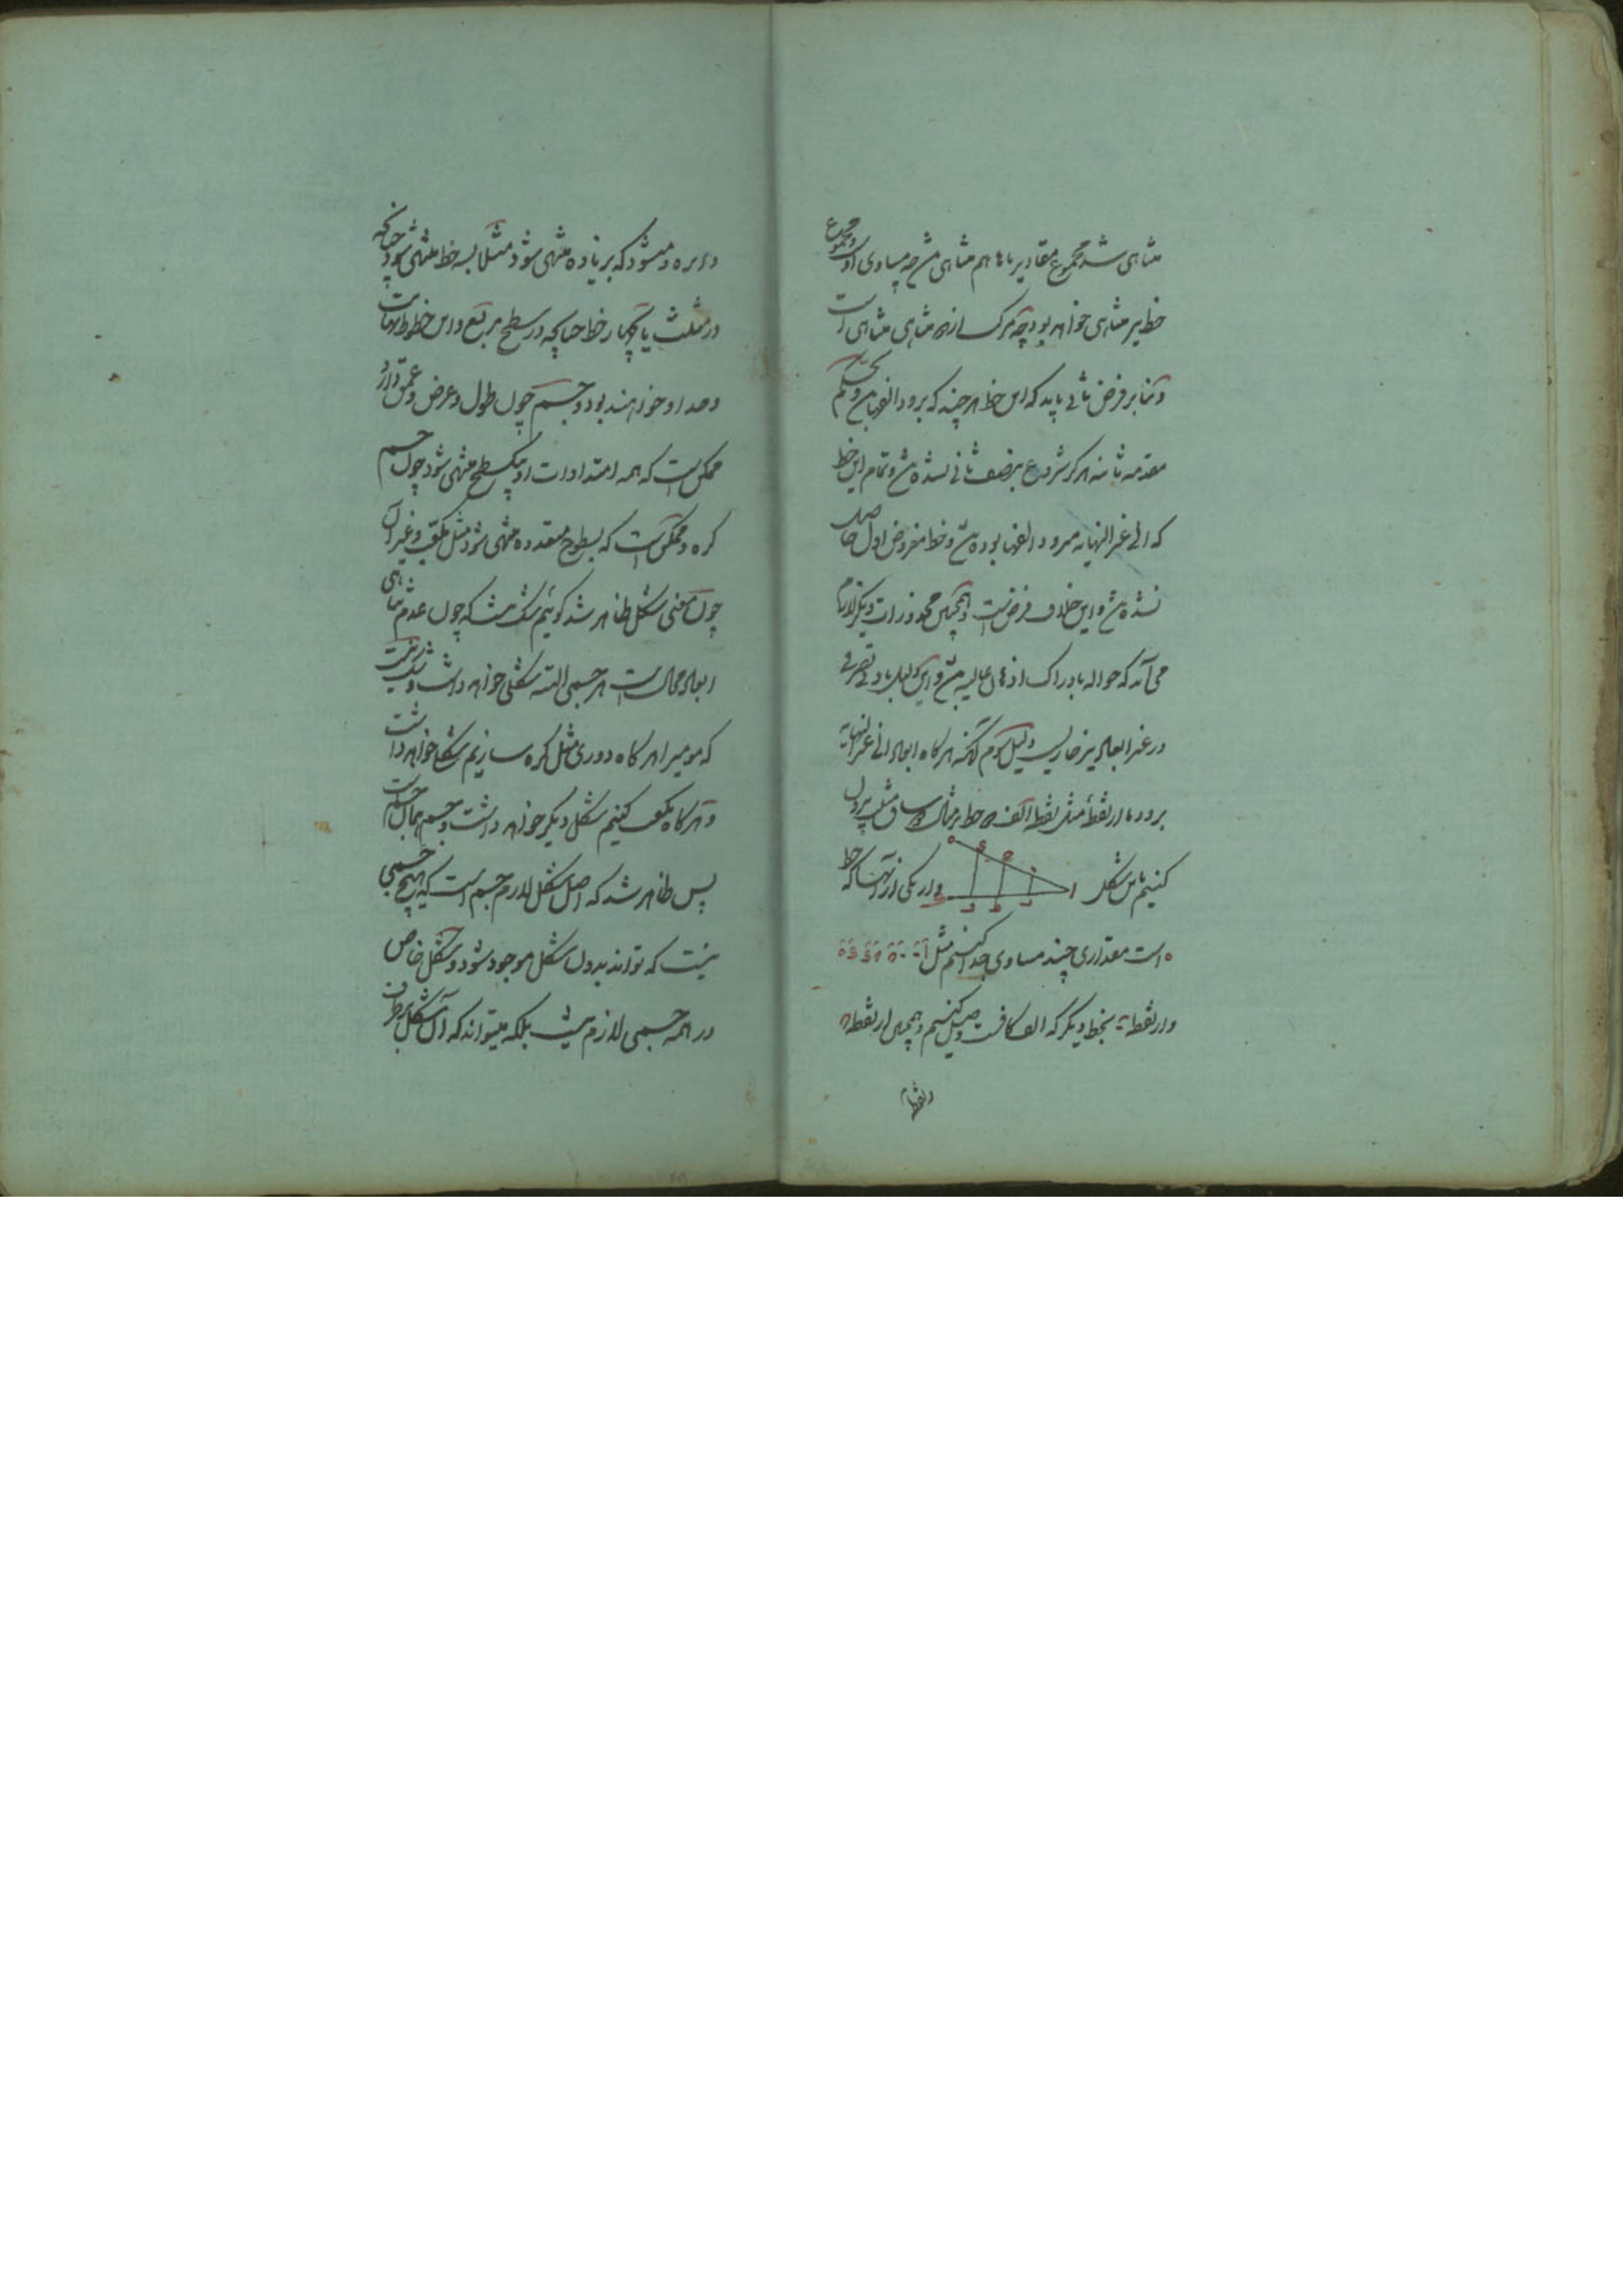 متناهی شد مجموع مقادیر باهم متناهی چه مساوی او و مجموع
خط نیز متناهی خواهد بود چه مرکب از متناهی متناهی است
و بنابر فرض ثانی باید که این خط هر چند که برود
مقدمه ثانیه هرگز شروع بنصف ثانی نشده و تمام این خط
که الی غیر النهایه میرود بوده و خط مفروض اول حاصل
نشده و این خلاف فرض است و همچنین محذورات دیگر لازم
می آید که حواله بادراک اذهان عالیه و این دلیل بادنی تصرفی
در غیر ابعاد نیز جاریست دلیل سوم آنکه هرگاه ابعاد الی غیر النهایة
برود ما از نقطه مثل نقطه الف دو خط بر مثال ساق مثلث بیرون
کنیم باین شکل و از یکی از آنها که خط
است مقداری چند مساوی جدا کنیم مثل
و از نقطه ب بخط دیگر که الف کافست وصل کنیم و همچنین از نقطه
و نقطه
دایره و میشود که بزیاده منتهی شود مثلا بسه خط منتهی شود چنانکه
در مثلث یا بچهار خط چنانچه در سطح مربع و این خطوط نهایات
و حد او خواهند بود و جسم چون طول و عرض و عمق دارد
ممکن است که همه امتدادات او بیک سطح منتهی شود چون جسم
کره و ممکن است که بسطوح متعدده منتهی شود مثل مکعب و غیر آن
چون معنی شکل ظاهر شد گوئیم شک نیست که چون عدم تناهی
ابعاد محالست هر جسمی البته شکلی خواهد داشت و شک نیست
که موم را هرگاه دوری مثل کره سازیم شکلی خواهد داشت
و هرگاه مکعب کنیم شکل دیگر خواهد داشت و جسم همان جسم است
پس ظاهر شد که اصل شکل لازم جسم است که هیچ جسمی
نیست که تواند بدون شکل موجود شود و شکل خاص
در همه جسمی لازم نیست بلکه میتواند که آن شکل برطرف